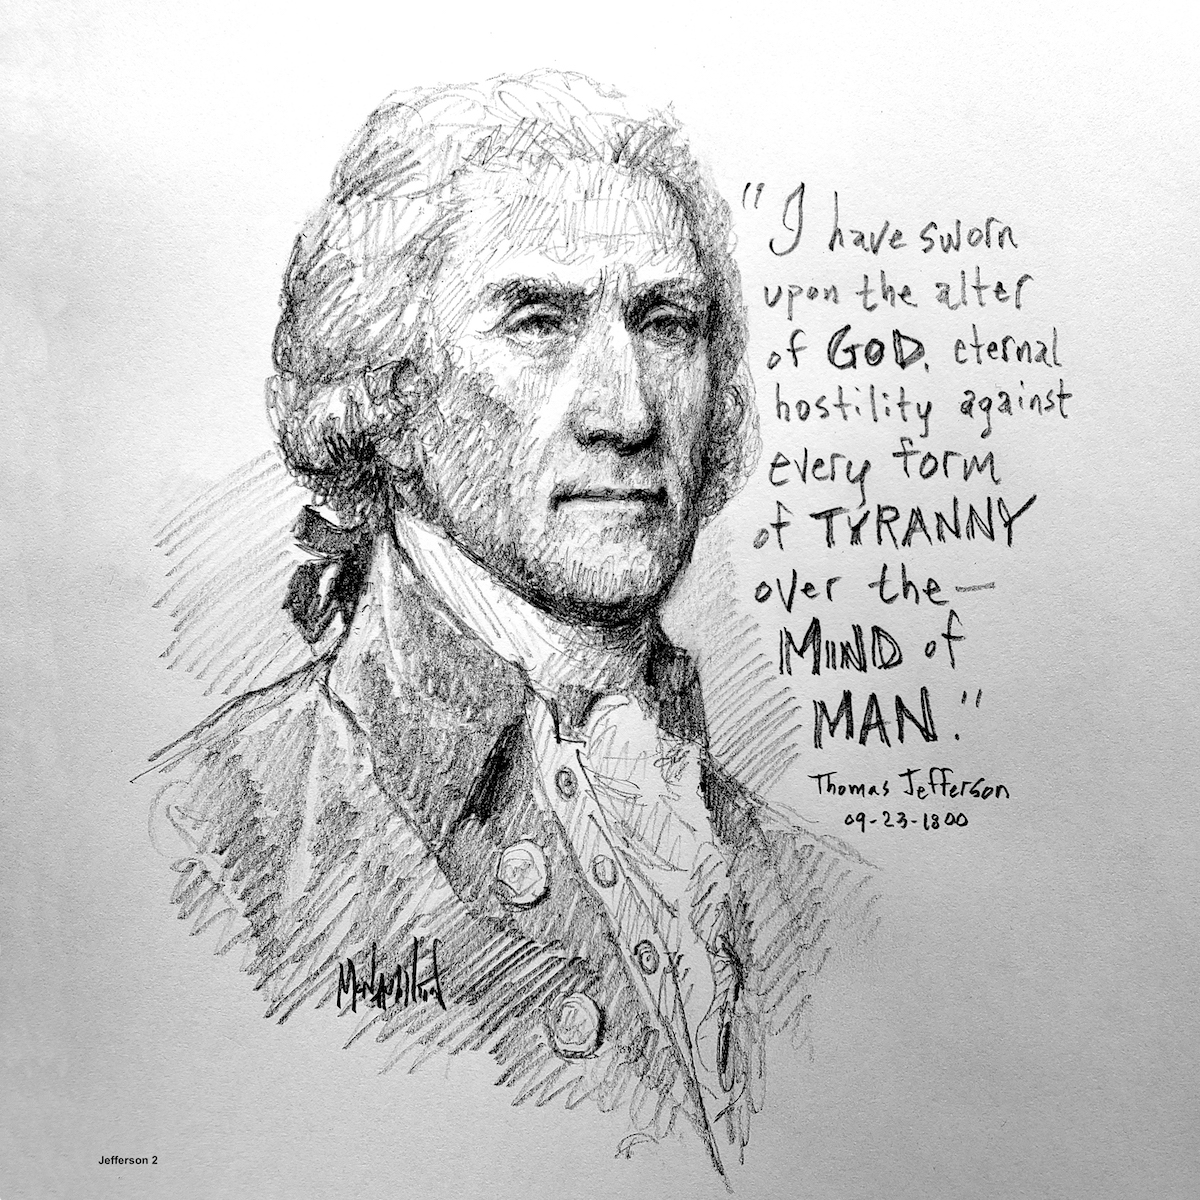 "I have sworn
upon the alter
of GOD, eternal
hostility against
every form
of TYRANNY
over the—
MIND of
MAN."
Thomas Jefferson
09-23-1800
Jefferson 2